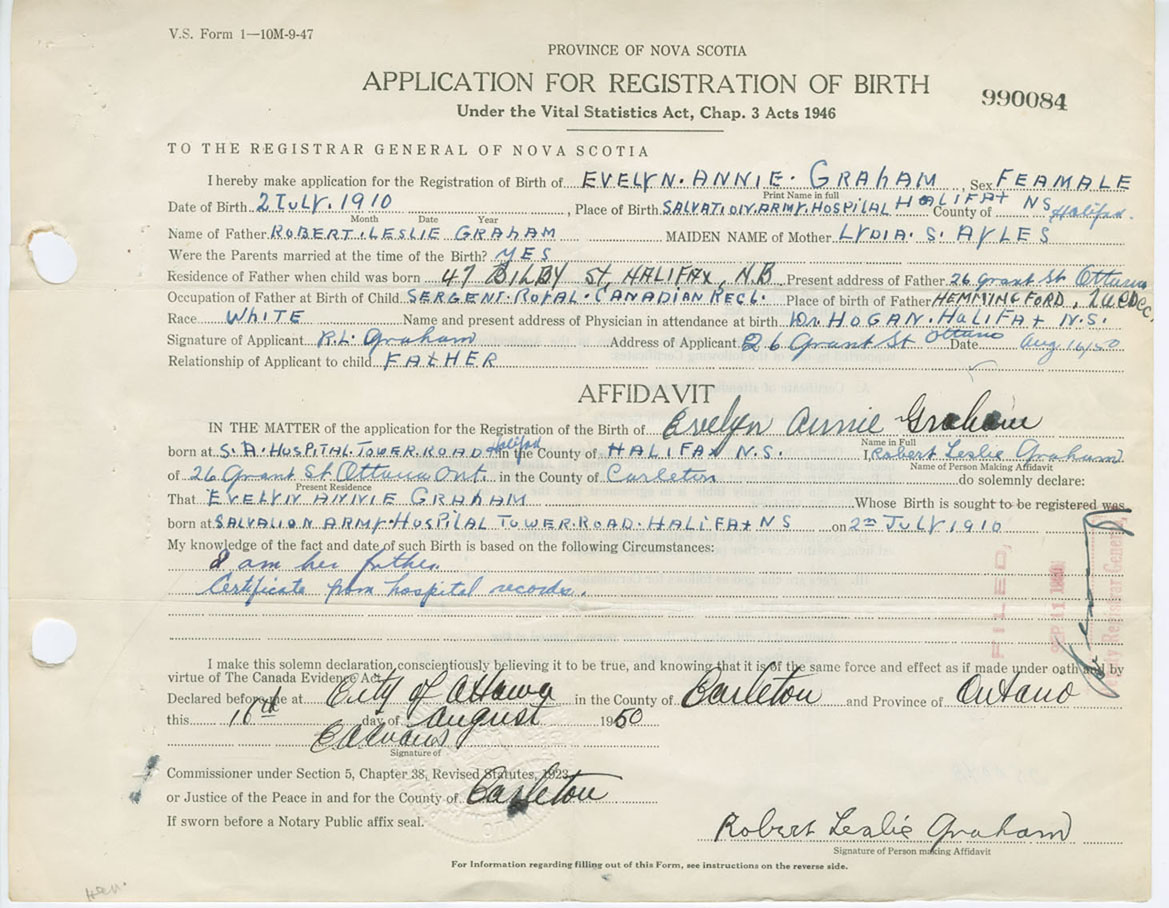 V.S. Form 1—10M-9-47
PROVINCE OF NOVA SCOTIA
APPLICATION FOR REGISTRATION OF BIRTH
990084
Under the Vital Statistics Act, Chap. 3 Acts 1946
TO THE REGISTRAR GENERAL OF NOVA SCOTIA
I hereby make application for the Registration of Birth of EVELYN. ANNIE. GRAHAM, Sex FEAMALE
Print Name in full
Date of Birth 2 JULY. 1910, Place of Birth SALVATION. ARMY. HOSPILAL HALIFAX NS County of Halifax.
Month Date Year
Name of Father ROBERT. LESLIE GRAHAM MAIDEN NAME of Mother LYDIA. S. AYLES
Were the Parents married at the time of the Birth? YES
Residence of Father when child was born 47 BILBY St, HALIFAX, N.B Present address of Father 26 Grant St Ottawa
Occupation of Father at Birth of Child SERGENT. ROYAL. CANADIAN REGL. Place of birth of Father HEMMINGFORD,
Race WHITE Name and present address of Physician in attendance at birth Dr. HOGAN. HALIFAX N.S.
Signature of Applicant R.L. Graham Address of Applicant 26 Grant St Ottawa Date Aug 16/50
Relationship of Applicant to child FATHER
AFFIDAVIT
IN THE MATTER of the application for the Registration of the Birth of Evelyn Annie Graham
Name in Full
born at S. A. HOSPITAL TOWER ROAD Halifax in the County of HALIFAX N.S. I, Robert Leslie Graham
Name of Person Making Affidavit
of 26 Grant St Ottawa Ont. in the County of Carleton do solemnly declare:
Present Residence
That EVELYN ANNIE GRAHAM Whose Birth is sought to be registered was
born at SALVALION ARMY. HOSPILAL TOWER. ROAD. HALIFAX NS on 2nd JULY 1910
My knowledge of the fact and date of such Birth is based on the following Circumstances:
I am her father.
Certificate from hospital records.
FILED
SEP 11
Deputy Registrar General
I make this solemn declaration conscientiously believing it to be true, and knowing that it is of the same force and effect as if made under oath and by
virtue of The Canada Evidence Act.
Declared before me at City of Ottawa in the County of Carleton and Province of Ontario
this 16th day of August 1950
Signature of
Commissioner under Section 5, Chapter 38, Revised Statutes, 1923
or Justice of the Peace in and for the County of Carleton
If sworn before a Notary Public affix seal.
Robert Leslie Graham
Signature of Person making Affidavit
For Information regarding filling out of this Form, see instructions on the reverse side.